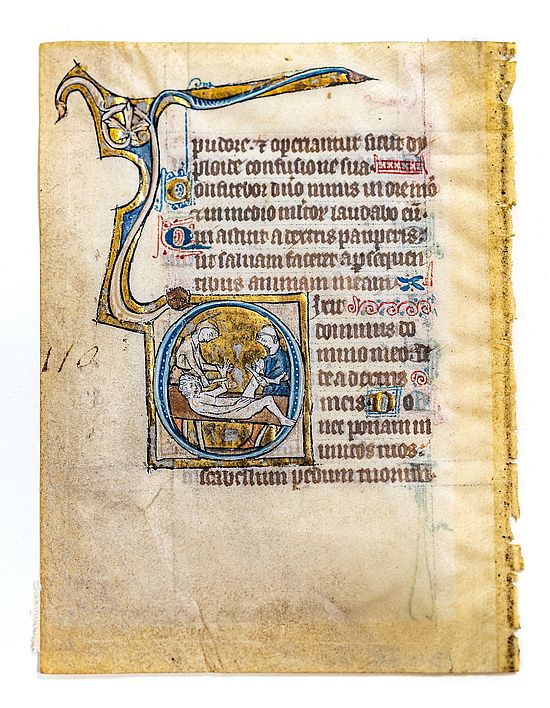 pudore: & operiantur sicut dy
ploide confusione sua
Confitebor dño nimis in ore meo
& in medio multor laudabo eū
Quia astitit a dextris pauperis:
ut saluam faceret a psequen
tibus animam meam
Dixit
dominus do
mino meo: se
de a dextris
meis Do
nec ponam in
imicos tuos
scabellum pedum tuorum
110